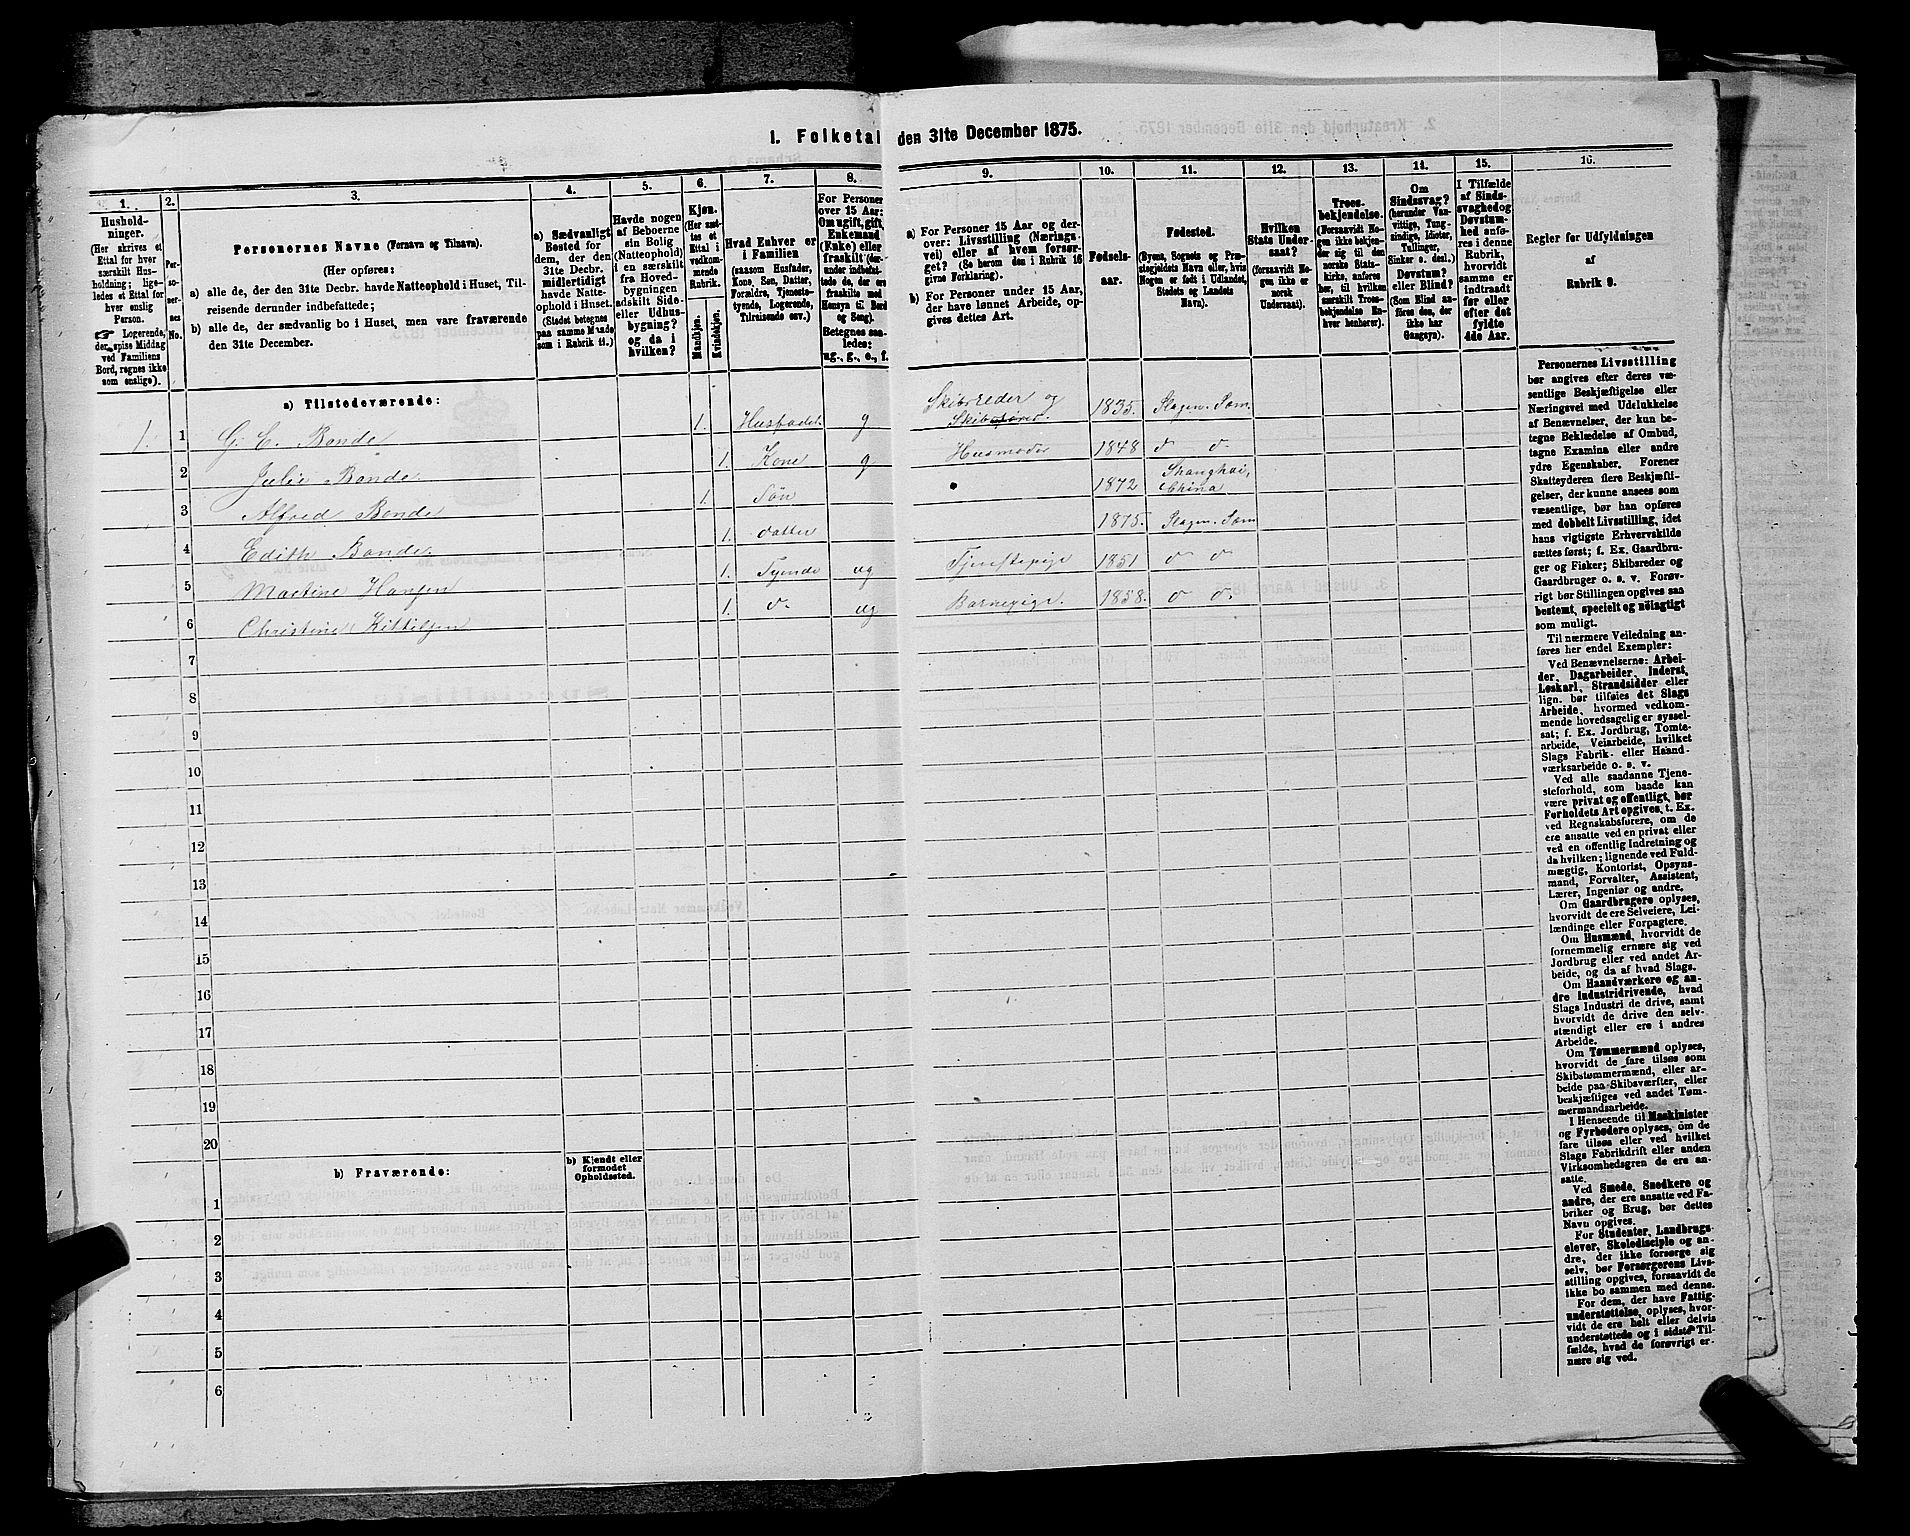 1. Folketal den 31te December 1875.
1.
Hushold-
ninger.
(Her skrives et
Ettal for hver
særskilt Hus-
holdning; lige-
ledes et Ettal for
hver enslig
Person.
☞ Logerende,
der spise Middag
ved Familiens
Bord, regnes ikke
som enslige).
2.
Per-
so-
ner-
nes
No.
3.
Personernes Navne (Fornavn og Tilnavn).
(Her opføres:
a) alle de, der den 31te Decbr. havde Natteophold i Huset, Til-
reisende derunder indbefattede;
b) alle de, der sædvanlig bo i Huset, men vare fraværende
den 31te December.
4.
a) Sædvanligt
Bosted for
dem, der den
31te Decbr.
midlertidigt
havde Natte-
ophold i Huset.
(Stedet betegnes
paa samme Maade
som i Rubrik 11.)
5.
Havde nogen
af Beboerne
sin Bolig
(Natteophold)
i en særskilt
fra Hoved-
bygningen
adskilt Side-
eller Udhus-
bygning?
og da i
hvilken?
6.
Kjøn.
(Her sæt-
tes et
Ettal i
vedkom-
mende
Rubrik.
Mandkjøn.
Kvindekjøn.
7.
Hvad Enhver er
i Familien
(saasom Husfader,
Kone, Søn, Datter,
Forældre, Tjeneste-
tyende, Logerende,
Tilreisende osv.)
8.
For Personer
over 15 Aar:
Om ugift, gift,
Enkemand
(Enke) eller
fraskilt (der-
under indbefat-
tede de, der ere
fraskilte med
Hensyn til Bord
og Seng).
Betegnes saa-
ledes:
ug., g., e., f.
9.
a) For Personer 15 Aar og der-
over: Livsstilling (Nærings-
vei) eller af hvem forsør-
get? (Se herom den i Rubrik 16
givne Forklaring).
b) For Personer under 15 Aar,
der have lønnet Arbeide, op-
gives dettes Art.
10.
Fødsels-
aar.
11.
Fødested.
(Byens, Sognets og Præ-
stegjeldets Navn eller, hvis
Nogen er født i Udlandet,
Stedets og Landets
Navn).
12.
Hvilken
Stats Under-
saat?
(forsaavidt No-
gen ikke er
norsk
Undersaat).
13.
Troes-
bekjendelse.
(Forsaavidt No-
gen ikke bekjen-
der sig til den
norske Stats-
kirke, anføres
her, til hvilken
særskilt Troes-
bekjendelse En-
hver henhører).
14.
Om
Sindssvag?
(herunder Van-
vittige, Tung-
sindige, Idioter,
Tullinger,
Sinker o. desl.)
Døvstum?
eller Blind?
(Som Blind an-
føres den, der
ikke har
Gangsyn).
15.
I Tilfælde
af Sinds-
svaghed og
Døvstum-
hed anfø-
res i denne
Rubrik,
hvorvidt
samme er
indtraadt
før eller
efter det
fyldte
4de Aar.
16.
Regler for Udfyldningen
af
Rubrik 9.
a) Tilstedeværende:
1. 1 G. C. Bonde 1. Husfader g Skibsreder og
Skibsfører 1835. Slagen. Sem
2 Julie Bonde 1. Kone g Husmoder 1848 d d
3 Alfred Bonde 1. Søn 1872 Shanghai,
China
4 Edith Bonde 1. datter 1875. Slagen. Sem
5 Martine Hansen 1. Tyende ug Tjenestepige 1851 d d
6 Christine Kittilsen 1. d. ug Barnepige. 1858. d d.
7
8
9
10
11
12
13
14
15
16
17
18
19
20
b) Fraværende:
b) Kjendt eller
formodet
Opholdssted.
1
2
3
4
5
6
Personernes Livsstilling
bør angives efter deres væ-
sentlige Beskjæftigelse eller
Næringsvei med Udelukkelse
af Benævnelser, der kun be-
tegne Beklædelse af Ombud,
tagne Examina eller andre
ydre Egenskaber. Forener
Skatteyderen flere Beskjæfti-
gelser, der kunne ansees som
væsentlige, bør han opføres
med dobbelt Livsstilling, idet
hans vigtigste Erhvervskilde
sættes først; f. Ex. Gaardbru-
ger og Fisker; Skibsreder og
Gaardbruger o. s. v. Forøv-
rigt bør Stillingen opgives saa
bestemt, specielt og nøiagtigt
som muligt.
Til nærmere Veiledning an-
føres her endel Exempler:
Ved Benævnelserne: Arbei-
der, Dagarbeider, Inderst,
Løskarl, Strandsidder eller
lign. bør tilføies det Slags
Arbeide, hvormed vedkom-
mende hovedsagelig er syssel-
sat; f. Ex. Jordbrug, Tomte-
arbeide, Veiarbeide, hvilket
Slags Fabrik- eller Haand-
værksarbeide o. s. v.
Ved alle saadanne Tjene-
steforhold, som baade kan
være privat og offentligt, bør
Forholdets Art opgives, t. Ex.
ved Regnskabsførere, om de
ere ansatte ved en privat eller
ved en offentlig Indretning og
da hvilken; lignende ved Fuld-
mægtig, Kontorist, Opsyns-
mand, Forvalter, Assistent,
Lærer, Ingeniør og andre.
Om Gaardbrugere oplyses,
hvorvidt de ere Selveiere, Lei-
lændinge eller Forpagtere.
Om Husmænd, hvorvidt de
fornemmelig ernære sig ved
Jordbrug eller ved andet Ar-
beide, og da af hvad Slags.
Om Haandværkere og an-
dre Industridrivende, hvad
Slags Industri de drive, samt
hvorvidt de drive den selv-
stændigt eller ere i andres
Arbeide.
Om Tømmermænd oplyses,
hvorvidt de fare tilsøs som
Skibstømmermænd, eller ar-
beide paa Skibsværfter, eller
beskjæftiges ved andet Tøm-
mermandsarbeide.
I Henseende til Maskinister
og Fyrbødere oplyses, om de
fare tilsøs eller ved hvilket
Slags Fabrikdrift eller anden
Virksomhedsgren de ere an-
satte.
Ved Smede, Snedkere og
andre, der ere ansatte ved Fa-
briker og Brug, bør dettes
Navn opgives.
For Studenter, Landbrugs-
elever, Skoledisciple og an-
dre, der ikke forsørge sig
selv, bør Forsørgerens Livs-
stilling opgives, forsaavidt de
ikke bo sammen med denne.
For dem, der have Fattig-
understøttelse, oplyses, hvor-
vidt de ere helt eller delvis
understøttede og i sidste Til-
fælde, hvad de forøvrigt er-
nære sig ved.